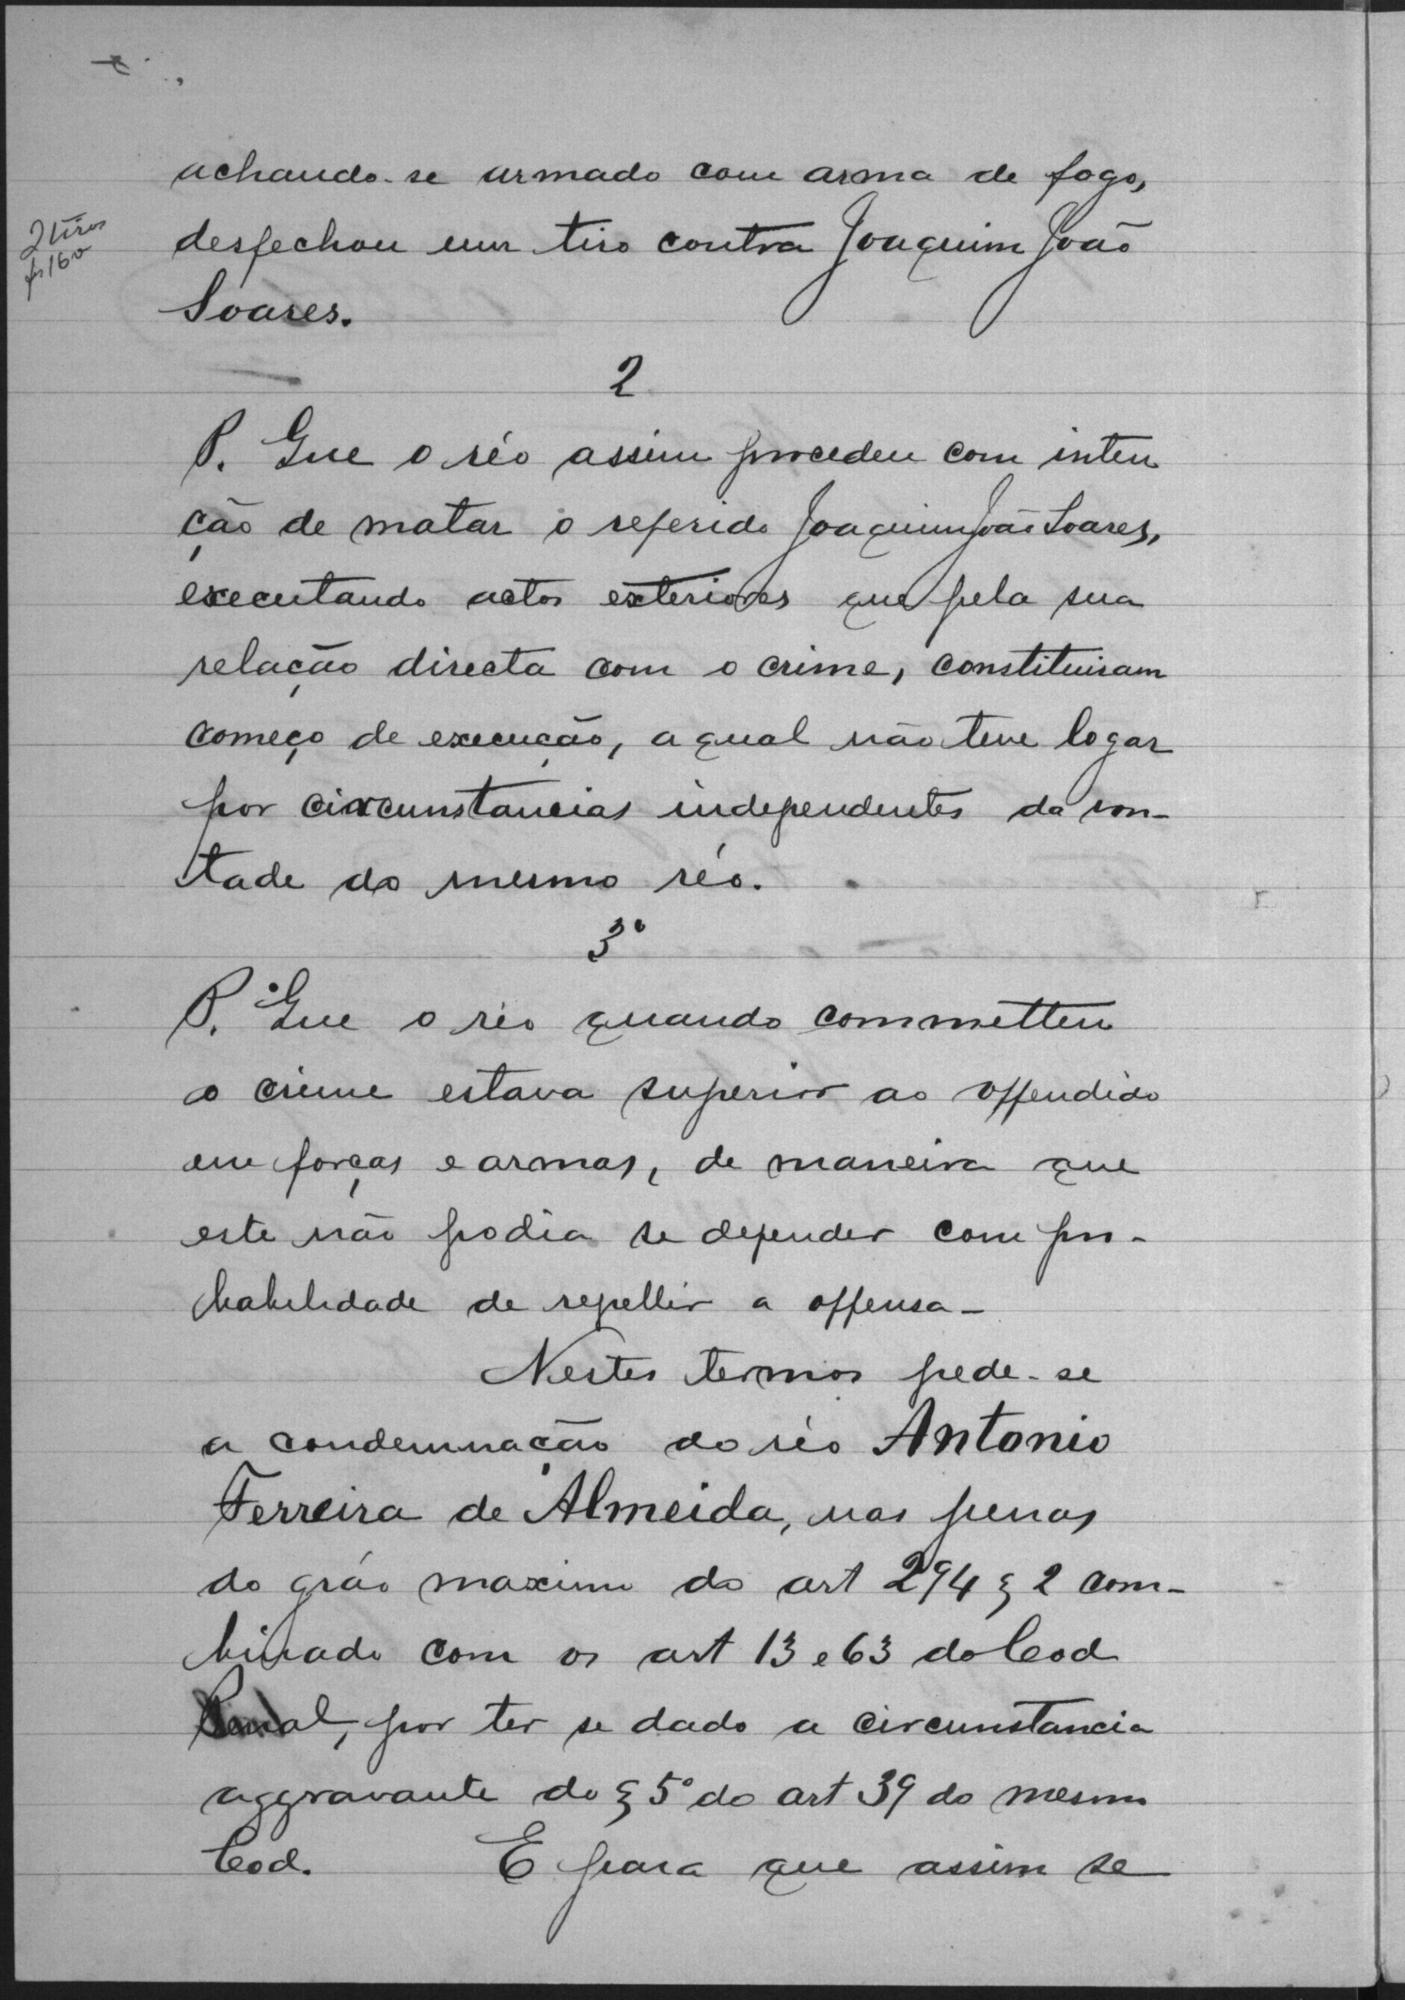 2 tiros
fs 16 v
achando-se armado com arma de fogo,
desfechou um tiro contra Joaquim João
Soares.
2
P. Que o réo assim procedeu com inten
ção de matar o referido Joaquim João Soares,
executando actos exteriores que pela sua
relação directa com o crime, constituiram
começo de execução, a qual não teve logar
por circumstancias independentes da von-
tade do mesmo réo.
3º
P. Que o réo quando commetteu
o crime estava superior ao offendido
em forças e armas, de maneira que
este não podia se defender com pro-
babilidade de repellir a offensa -
Nestes termos pede-se
a condemnação do réo Antonio
Ferreira de Almeida, nas penas
do gráo maximo do art 294 § 2 com-
binado com os art 13 e 63 do Cod
Penal, por ter se dado a circunstancia
aggravante do § 5º do art 39 do mesmo
Cod. E para que assim se